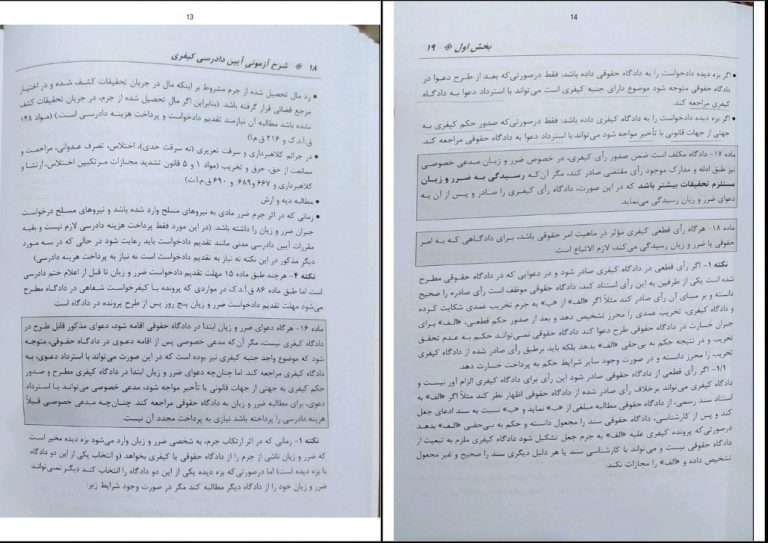 13
۱۸ ❖ شرح آزمونی آیین دادرسی کیفری
● رد مال تحصیل شده از جرم مشروط بر اینکه مال در جریان تحقیقات کشف شده و در اختیار
مرجع قضائی قرار گرفته باشد. (بنابراین اگر مال تحصیل شده از جرم، در جریان تحقیقات کشف
نشده باشد مطالبه آن نیازمند تقدیم دادخواست و پرداخت هزینه دادرسی است.) (مواد ۱۴۸
ق.آ.د.ک و ۲۱۶ ق.م.ا)
● در جرائم کلاهبرداری و سرقت تعزیری (نه سرقت حدی)، اختلاس، تصرف عدوانی، مزاحمت و
ممانعت از حق، حرق و تخریب (مواد ۱ و ۵ قانون تشدید مجازات مرتکبین اختلاس، ارتشا و
کلاهبرداری و ۶۶۷ و ۶۸۹ و ۶۹۰ ق.م.ا.ت)
● مطالبه دیه و ارش
● زمانی که در اثر جرم ضرر مادی به نیروهای مسلح وارد شده باشد و نیروهای مسلح درخواست
جبران ضرر و زیان را داشته باشد. (در این مورد فقط پرداخت هزینه دادرسی لازم نیست و بقیه
مقررات آیین دادرسی مدنی مانند تقدیم دادخواست باید رعایت شود در حالی که در سه مورد
دیگر مذکور در این نکته نه نیاز به تقدیم دادخواست است نه نیاز به پرداخت هزینه دادرسی)
نکته ۴- هرچند طبق ماده ۱۵ مهلت تقدیم دادخواست ضرر و زیان تا قبل از اعلام ختم دادرسی
است اما طبق ماده ۸۶ ق.آ.د.ک در مواردی که پرونده با کیفرخواست شفاهی در دادگاه مطرح
می‌شود مهلت تقدیم دادخواست ضرر و زیان پنج روز پس از طرح پرونده در دادگاه است.
ماده ۱۶- هرگاه دعوای ضرر و زیان ابتدا در دادگاه حقوقی اقامه شود، دعوای مذکور قابل طرح در
دادگاه کیفری نیست، مگر آن که مدعی خصوصی پس از اقامه دعوی در دادگاه حقوقی، متوجه
شود که موضوع واجد جنبه کیفری نیز بوده است که در این صورت می‌تواند با استرداد دعوی، به
دادگاه کیفری مراجعه کند. اما چنان‌چه دعوای ضرر و زیان ابتدا در دادگاه کیفری مطرح و صدور
حکم کیفری به جهتی از جهات قانونی با تأخیر مواجه شود، مدعی خصوصی می‌تواند با استرداد
دعوی، برای مطالبه ضرر و زیان به دادگاه حقوقی مراجعه کند. چنان‌چه مدعی خصوصی قبلاً
هزینه دادرسی را پرداخته باشد نیازی به پرداخت مجدد آن نیست.
نکته ۱- زمانی که در اثر ارتکاب جرم، به شخصی ضرر و زیان وارد می‌شود بزه دیده مخیر است
که ضرر و زیان ناشی از جرم را از دادگاه حقوقی یا کیفری بخواهد (و انتخاب یکی از این دو دادگاه
با بزه دیده است) اما درصورتی‌که بزه دیده یکی از این دو دادگاه را انتخاب کند دیگر نمی‌تواند
ضرر و زیان خود را از دادگاه دیگر مطالبه کند مگر در صورت وجود شرایط زیر:
14
بخش اول ❖ ۱۹
● اگر بزه دیده دادخواست را به دادگاه حقوقی داده باشد: فقط درصورتی‌که بعد از طرح دعوا در
دادگاه حقوقی متوجه شود موضوع دارای جنبه کیفری است می‌تواند با استرداد دعوا به دادگاه
کیفری مراجعه کند.
● اگر بزه دیده دادخواست را به دادگاه کیفری داده باشد: فقط درصورتی‌که صدور حکم کیفری به
جهتی از جهات قانونی با تأخیر مواجه شود می‌تواند با استرداد دعوا به دادگاه حقوقی مراجعه کند.
ماده ۱۷- دادگاه مکلف است ضمن صدور رأی کیفری، در خصوص ضرر و زیان مدعی خصوصی
نیز طبق ادله و مدارک موجود رأی مقتضی صادر کند، مگر آن‌که رسیدگی به ضرر و زیان
مستلزم تحقیقات بیشتر باشد که در این صورت، دادگاه رأی کیفری را صادر و پس از آن به
دعوای ضرر و زیان رسیدگی می‌نماید.
ماده ۱۸- هرگاه رأی قطعی کیفری مؤثر در ماهیت امر حقوقی باشد، برای دادگاهی که به امر
حقوقی یا ضرر و زیان رسیدگی می‌کند، لازم الاتباع است.
نکته ۱- اگر رأی قطعی در دادگاه کیفری صادر شود و در دعوایی که در دادگاه حقوقی مطرح
شده است یکی از طرفین به این رأی استناد کند، دادگاه حقوقی موظف است رأی صادره را صحیح
دانسته و بر مبنای آن رأی صادر کند مثلاً اگر «الف» از «ب» به جرم تخریب عمدی شکایت کرده
و دادگاه کیفری، تخریب عمدی را محرز تشخیص دهد و بعد از صدور حکم قطعی، «الف» برای
جبران خسارت در دادگاه حقوقی طرح دعوا کند دادگاه حقوقی نمی‌تواند حکم به عدم تحقق
تخریب و در نتیجه حکم به بی‌حقی «الف» بدهد بلکه باید برطبق رأی صادر شده از دادگاه کیفری
تخریب را محرز دانسته و در صورت وجود سایر شرایط حکم به پرداخت خسارت دهد.
۱/۱- اگر رأی قطعی از دادگاه حقوقی صادر شود این رأی برای دادگاه کیفری الزام آور نیست و
دادگاه کیفری می‌تواند برخلاف رأی صادر شده از دادگاه حقوقی اظهار نظر کند مثلاً اگر «الف» به
استناد سند رسمی، از دادگاه حقوقی مطالبه مبلغی از «ب» نماید و «ب» نسبت به سند ادعای جعل
کند و پس از کارشناسی، دادگاه حقوقی سند را مجعول دانسته و حکم به بی‌حقی «الف» بدهد
درصورتی‌که پرونده کیفری علیه «الف» به جرم جعل تشکیل شود دادگاه کیفری ملزم به تبعیت از
دادگاه حقوقی نیست و می‌تواند با کارشناسی سند یا هر دلیل دیگری سند را صحیح و غیر مجعول
تشخیص داده و «الف» را مجازات نکند.